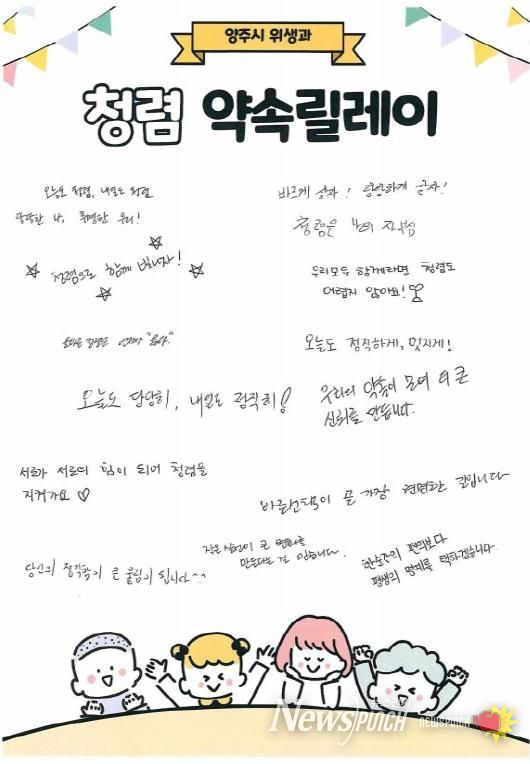 양주시 위생과
청렴 약속릴레이
오늘도 청렴, 내일도 청렴
당당한 나, 투명한 우리!
바르게 살자! 당당하게 살자!
청렴은 나의 자부심
청렴으로 함께 빛나자!
우리모두 함께라면 청렴도
어렵지 않아요!
오늘도 정직하게, 멋지게!
오늘도 당당히, 내일도 정직히!
우리의 약속이 모여 더 큰
신뢰를 만듭니다.
서로가 서로의 힘이 되어 청렴을
지켜가요 ♡
바른선택이 곧 가장 현명한 길입니다
작은 실천이 큰 변화를
만든다는 걸 믿습니다.
한순간의 편익보다
평생의 명예를 택하겠습니다.
당신의 정직함이 큰 울림이 됩니다^^
뉴스펀치
NEWSPUNCH
newspunch